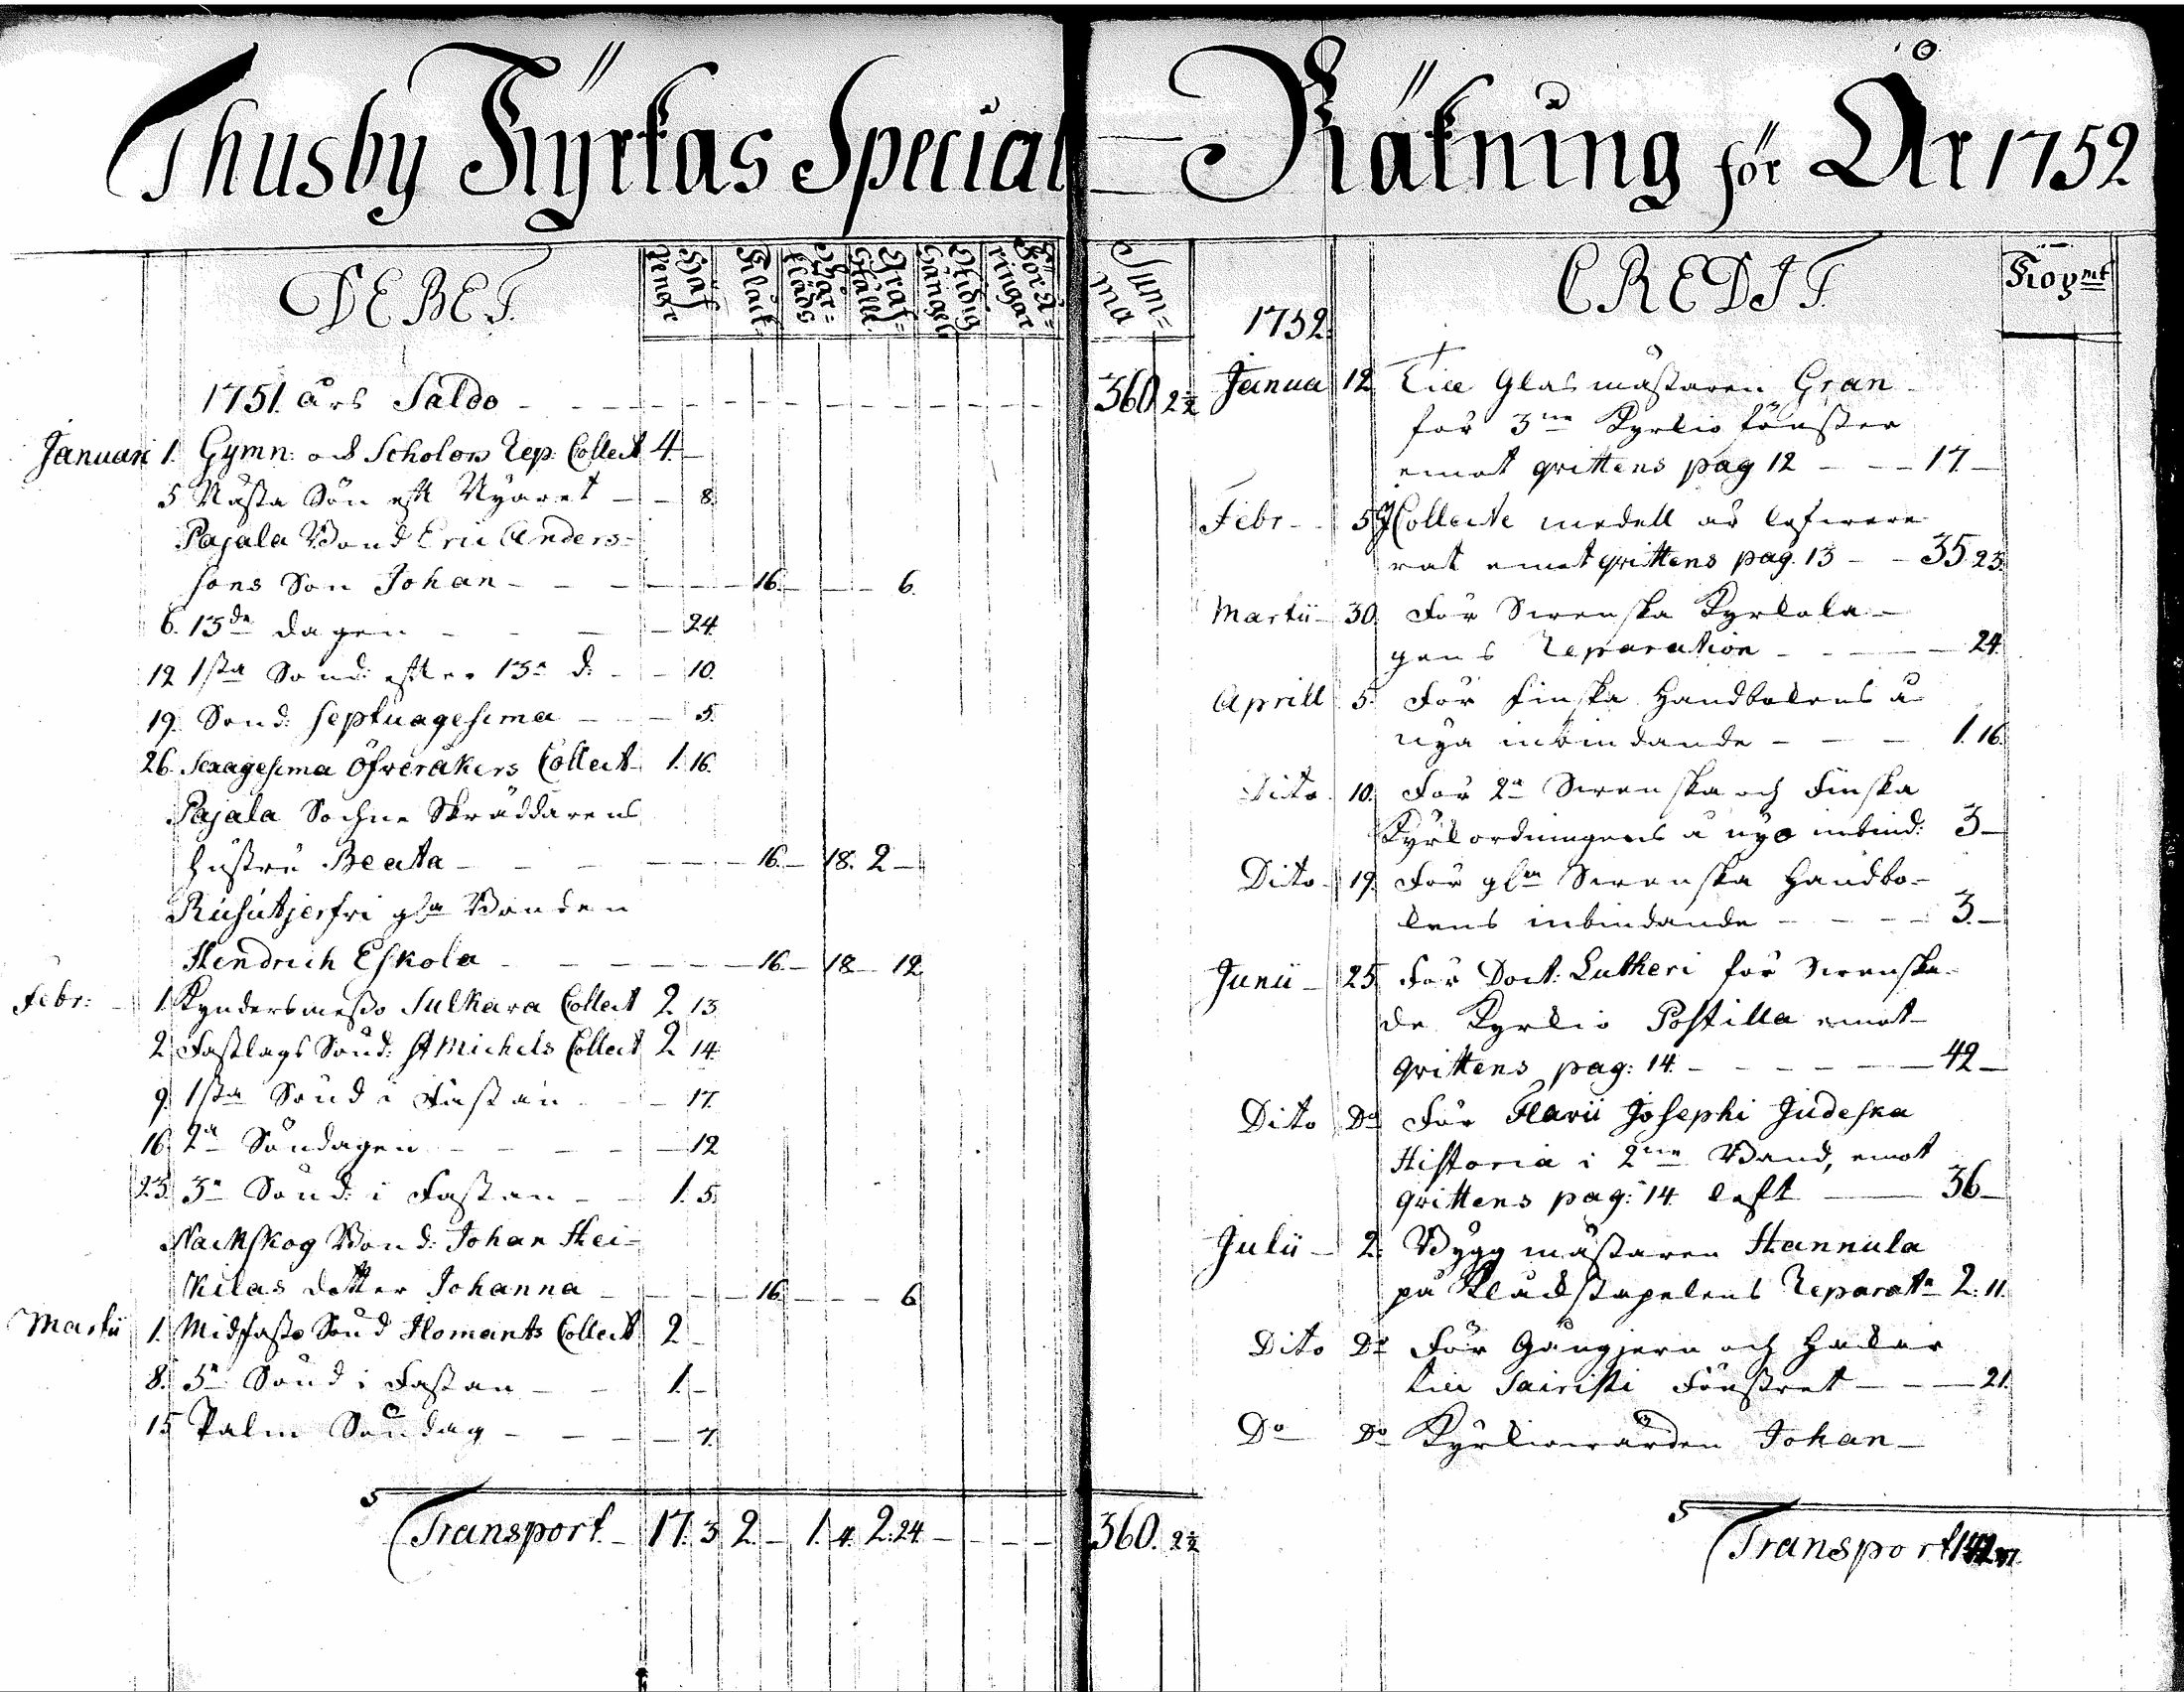 Thusby Kÿrkas Special Räkning för År 1752
DEBET. Håf penger Klock Bår= kläds Graf= Ställe Städig Gångel Förä= ringar Sum= ma
1751. års Saldo - - - 360. 2½
Januari 1. Gymn: och Scholors Rep: Collect 4. -
5 Nästa Sön. eft Nyåret - - 8.
Pajala Bond Eric Anders=
sons Son Johan - - - 16. - - - 6.
6. 13de dagen - - - 24.
12 1sta Sond: efter 13e d: - - 10.
19. Sond: Septuagesima - - 5.
26. Sexagesima Öfveråkers Collect 1. 16.
Pajala Sochne Skräddarens
hustru Beata - - - 16. - 18. 2 -
Rusutjerfvi gla Bonden
Hendrich Eskola - - - 16. - 18 - 12
Febr: 1. Kyndersmesso Sulkava Collect 2 13
2. Fastlags Sond: St Michels Collect 2 14.
9. 1sta Sond i Fastan - - 17.
16. 2a Söndagen - - - 12
23. 3e Sond: i Fastan - - 1. 5.
Nackskog Bond: Johan Hei=
kkilas dotter Johanna - - - 16. - - - 6
Martii 1. Midfasto Sond Ilomants Collect 2 -
8. 5e Sond i Fastan - - 1. -
15 Palm Söndag - - - 7.
Transport - 17. 3 2. - 1. 4. 2. 24 - - - - 360. 2½
1752. CREDIT. Kopmt
Janua 12 Till Glasmästaren Gran
för 3ne Kyrkio fönster
emot qvittens pag 12 - - - 17. -
Febr - 5. Collecte medell är lefvere
rat emot qvittens pag. 13 - - 35. 23.
Martii - 30. För Swenska Kyrkola-
gens Reparation - - - 24.
Aprill 5. För finska Handbokens å
nya inbindande - - - 1. 16.
Dito 10. För 2a Swenska och Finska
Kyrkordningens å nyo inbind: 3 -
Dito - 19. För gla Swenska Handbo-
kens inbindande - - - 3. -
Junii - 25 För Doct: Lutheri för Swenska-
de Kyrkio Postilla emot
qvittens pag: 14. - - - 42 -
Dito Do För Flavii Josephi Judeska
Historia i 2ne Band, emot
qvittens pag: 14 - 36 -
Julii - 2. Bygg mästaren Hannula
på Klockstapelens Reparatn 2. 11.
Dito Do För Gångjern och Hakar
till Sairisti Fönstret - - - 21.
Do Do Kyrkiowärden Johan -
Transport